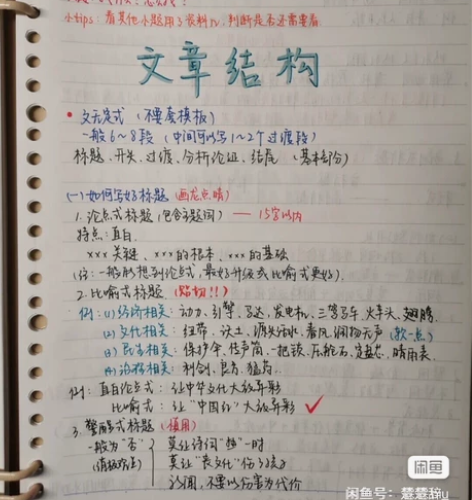 小tips: 看其他小题用了资料N,判断是否还需要看
文章结构
• 文无定式 (不要套模板)
一般6~8段 (中间可以写1~2个过渡段)
标题、开头、过渡、分析论证、结尾 (基本部分)
(一) 如何写好标题 (画龙点睛)
1. 论点式标题 (包含主题词) —— 15字以内
特点:直白
xxx关键、xxx的根本、xxx的基础
(注:一般形想到论点式,最好升级成比喻式更好)
2. 比喻式标题 (贴切!!)
例:(1) 经济相关:动力、引擎、马达、发电机、三驾马车、火车头、翅膀
(2) 文化相关:纽带、沃土、源头活水、春风、润物无声 (软一点)
(3) 民生相关:保护伞、传声筒、一把锁、压舱石、定盘心、晴雨表
(4) 治理相关:利剑、良方、猛药
例:直白论点式:让中华文化大放异彩
比喻式:让“中国印”大放异彩 ✓
3. 警醒式标题 (慎用)
一般为“否” 莫让诗词“热”一时
莫让“丧文化”伤了孩子
不要以伤害为代价
闲鱼
闲鱼号:慧慧